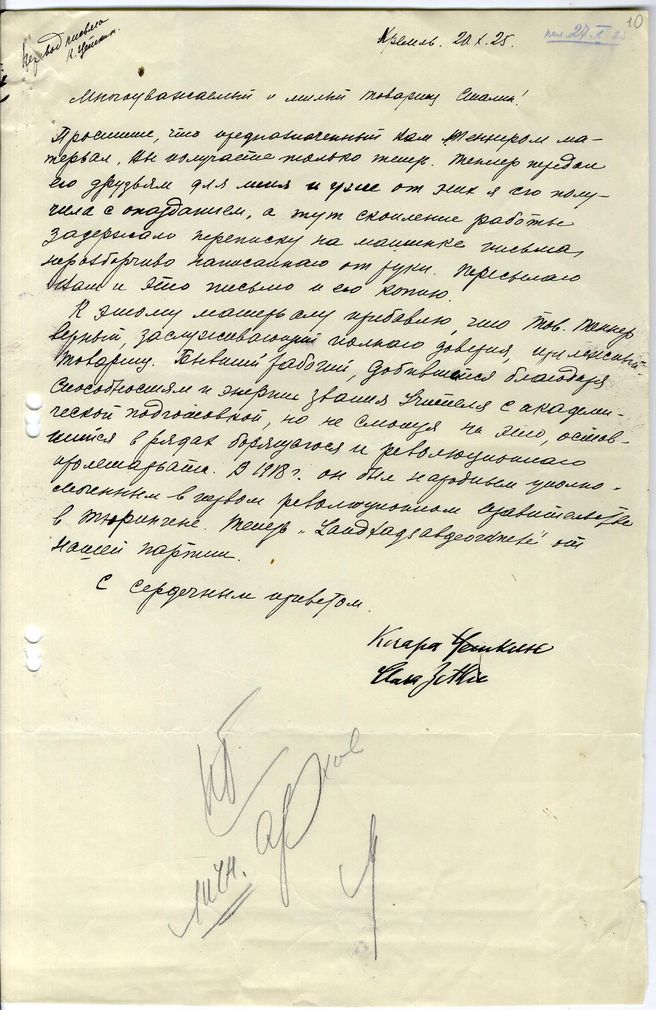 10
Перевод письма
К. Цеткин.
пол. 27.X.25
Кремль. 20.X.25.
Многоуважаемый и милый товарищ Сталин!
Простите, что предназначенный Вам Теннером ма-
териал, Вы получаете только теперь. Теннер передал
его друзьям для меня и уже от них я его полу-
чила с опозданием, а тут скопление работы
задержало переписку на машинке письма,
неразборчиво написаннаго от руки. Пересылаю
Вам и это письмо и его копию.
К этому матерьялу прибавлю, что Тов. Теннер
верный, заслуживающий полнаго доверия,
товарищ. Бывший рабочий, добившийся благодаря
способностям и энергии звания Учителя с академи-
ческой подготовкой, но не смотря на это, остав-
шийся в рядах борящагося и революционнаго
пролетарьята. В 1918 г. он был народным уполно-
моченным в первом революционном правительстве
в Тюрингене. Теперь „Landtagsabgeordneter" от
нашей партии.
С сердечным приветом.
Клара Цеткин
Clara Zetkin
личн.
архив